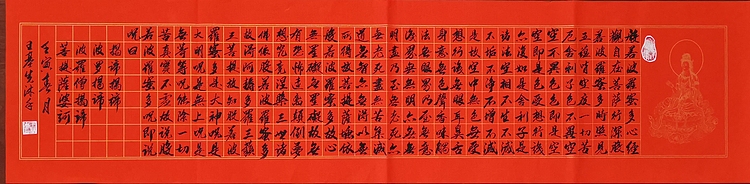 般若波羅蜜多心經
觀自在菩薩行深般
若波羅蜜多時照見
五蘊皆空度一切苦
厄舍利子色不異空
空不異色色即是空
空即是色受想行識
亦復如是舍利子是
諸法空相不生不滅
不垢不淨不增不減
是故空中無色無受
想行識無眼耳鼻舌
身意無色聲香味觸
法無眼界乃至無意
識界無無明亦無無
明盡乃至無老死亦
無老死盡無苦集滅
道無智亦無得以無
所得故菩提薩埵依
般若波羅蜜多故心
無罣礙無罣礙故無
有恐怖遠離顛倒夢
想究竟涅槃三世諸
佛依般若波羅蜜多
故得阿耨多羅三藐
三菩提故知般若波
羅蜜多是大神咒是
大明咒是無上咒是
無等等咒能除一切
苦真實不虛故說般
若波羅蜜多咒即說
咒曰
揭諦揭諦
波羅揭諦
波羅僧揭諦
菩提薩婆訶
壬寅春月
沐手